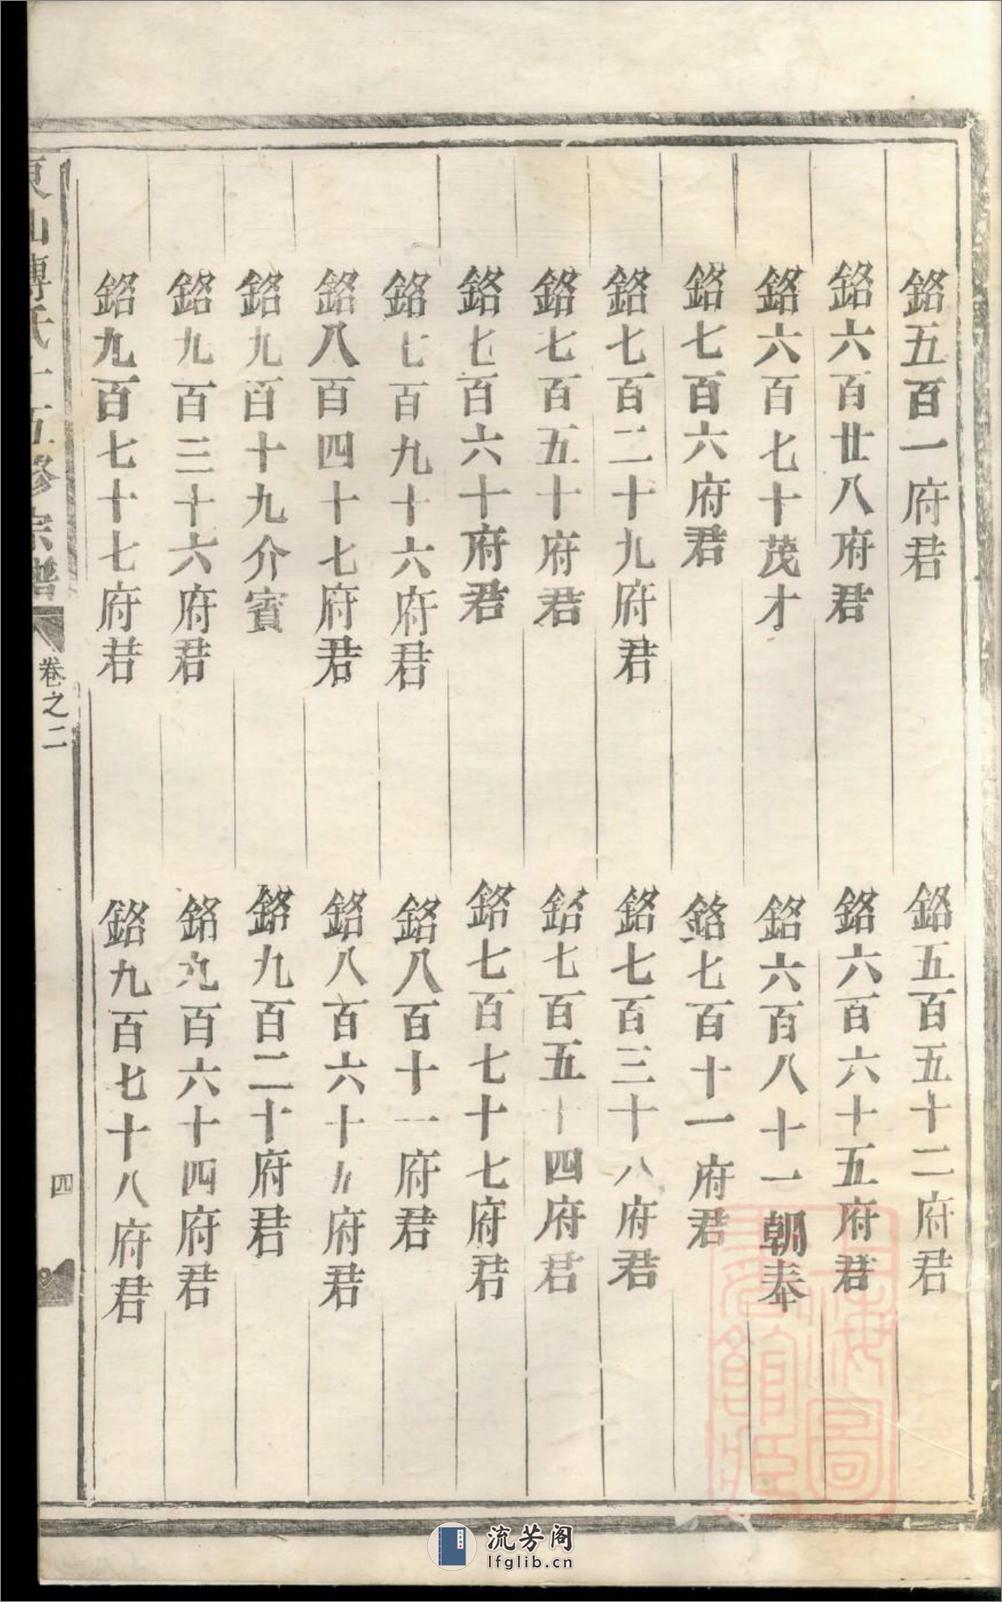 銘五百一府君
銘五百五十二府君
銘六百廿八府君
銘六百六十五府君
銘六百七十茂才
銘六百八十一朝奉
銘七百六府君
銘七百十一府君
銘七百二十九府君
銘七百三十八府君
銘七百五十府君
銘七百五十四府君
銘七百六十府君
銘七百七十七府君
銘七百九十六府君
銘八百十一府君
銘八百四十七府君
銘八百六十五府君
銘九百十九介賓
銘九百二十府君
銘九百三十六府君
銘九百六十四府君
銘九百七十七府君
銘九百七十八府君
東山傅氏十五修宗譜
卷之二
四
上海圖書館藏
流芳阁
lfglib.cn